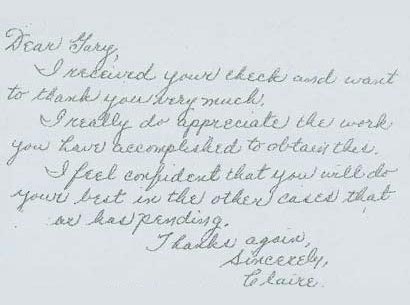 Dear Gary,
I received your check and want
to thank you very much.
I really do appreciate the work
you have accomplished to obtain this.
I feel confident that you will do
your best in the other cases that
or has pending.
Thanks again,
Sincerely,
Claire.